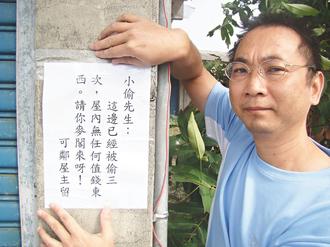 小偷先生：
這邊已經被偷三
次，屋內無任何值錢東
西。請你參閣來呀！
可鄰屋主留